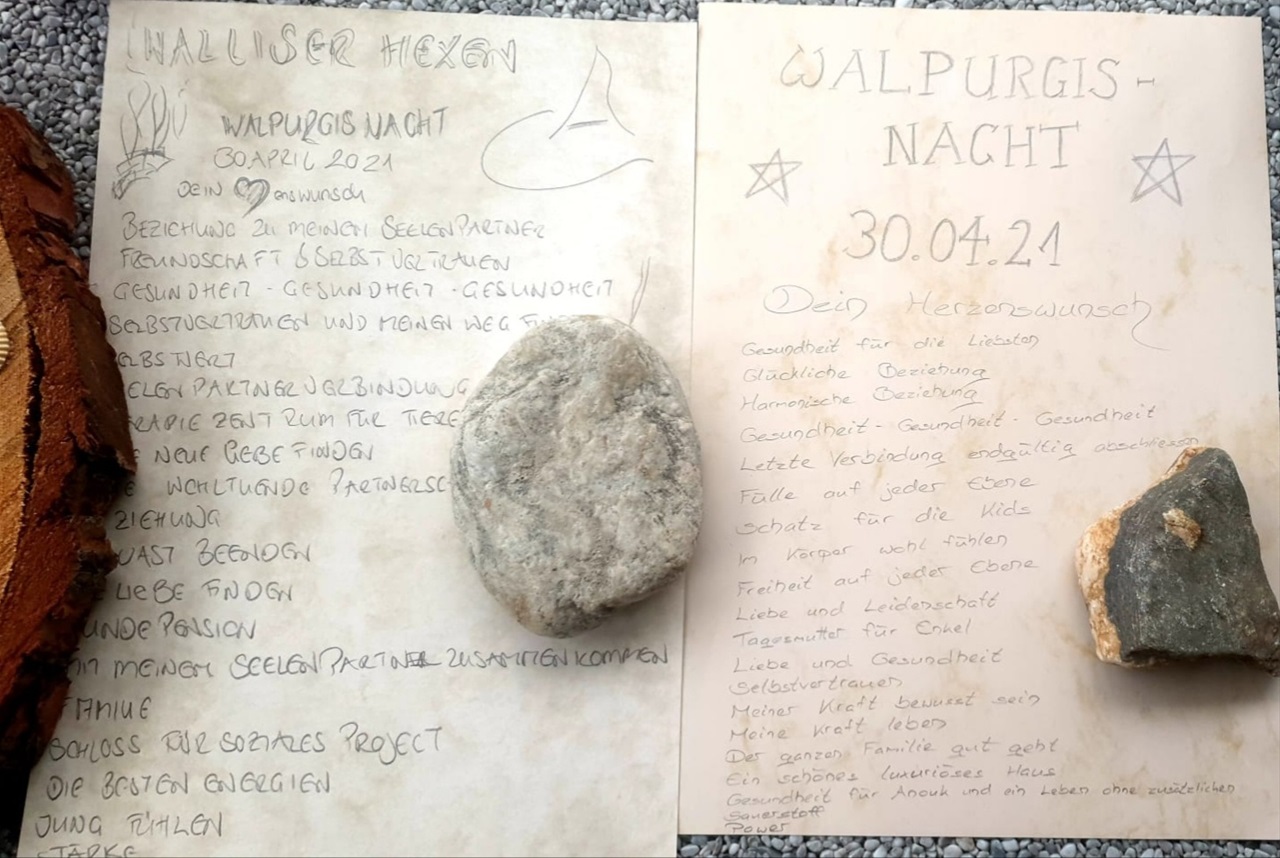 WALLISER HEXEN
WALPURGISNACHT
30 APRIL 2021
DEIN enswunsch
BEZIEHUNG ZU MEINEM SEELENPARTNER
FREUNDSCHAFT & SELBSTVERTRAUEN
GESUNDHEIT - GESUNDHEIT - GESUNDHEIT
SELBSTVERTRAUEN UND MEINEN WEG
ELBSTWERT
ELENPARTNERVERBINDUNG
RAPIE ZENTRUM FÜR TIERE
E NEUE LIEBE FINDEN
E WOHLTUENDE PARTNERSC
ZIEHUNG
BEENDEN
LIEBE FINDEN
UNDEPENSION
MIT MEINEM SEELENPARTNER ZUSAMMENKOMMEN
FAMILIE
SCHLOSS FÜR SOZIALES PROJECT
DIE BESTEN ENERGIEN
JUNG FÜHLEN
STÄRKE
WALPURGIS-
NACHT
30.04.21
Dein Herzenswunsch
Gesundheit für die Liebsten
Glückliche Beziehung
Harmonische Beziehung
Gesundheit - Gesundheit - Gesundheit
Letzte Verbindung endgültig abschliessen
Fülle auf jeder Ebene
Schatz für die Kids
Im Körper wohl fühlen
Freiheit auf jeder Ebene
Liebe und Leidenschaft
Tagesmutter für Enkel
Liebe und Gesundheit
Selbstvertrauen
Meiner Kraft bewusst sein
Meine Kraft leben
Der ganzen Familie gut geht
Ein schönes luxuriöses Haus
Gesundheit für Anouk und ein Leben ohne zusätzlichen
Sauerstoff
Power